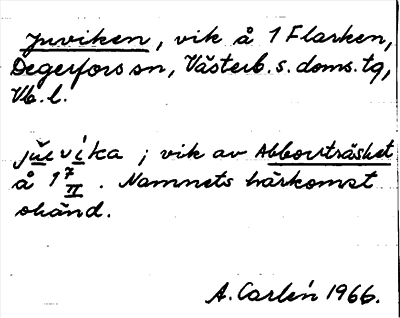 Juviken, vik å 1 Flarken,
Degerfors sn, Västerb. s. doms. tg,
Vb. l.
jŭvíka ; vik av Abborrträsket
å 1 7 II . Namnets härkomst
okänd.
A. Carlén 1966.